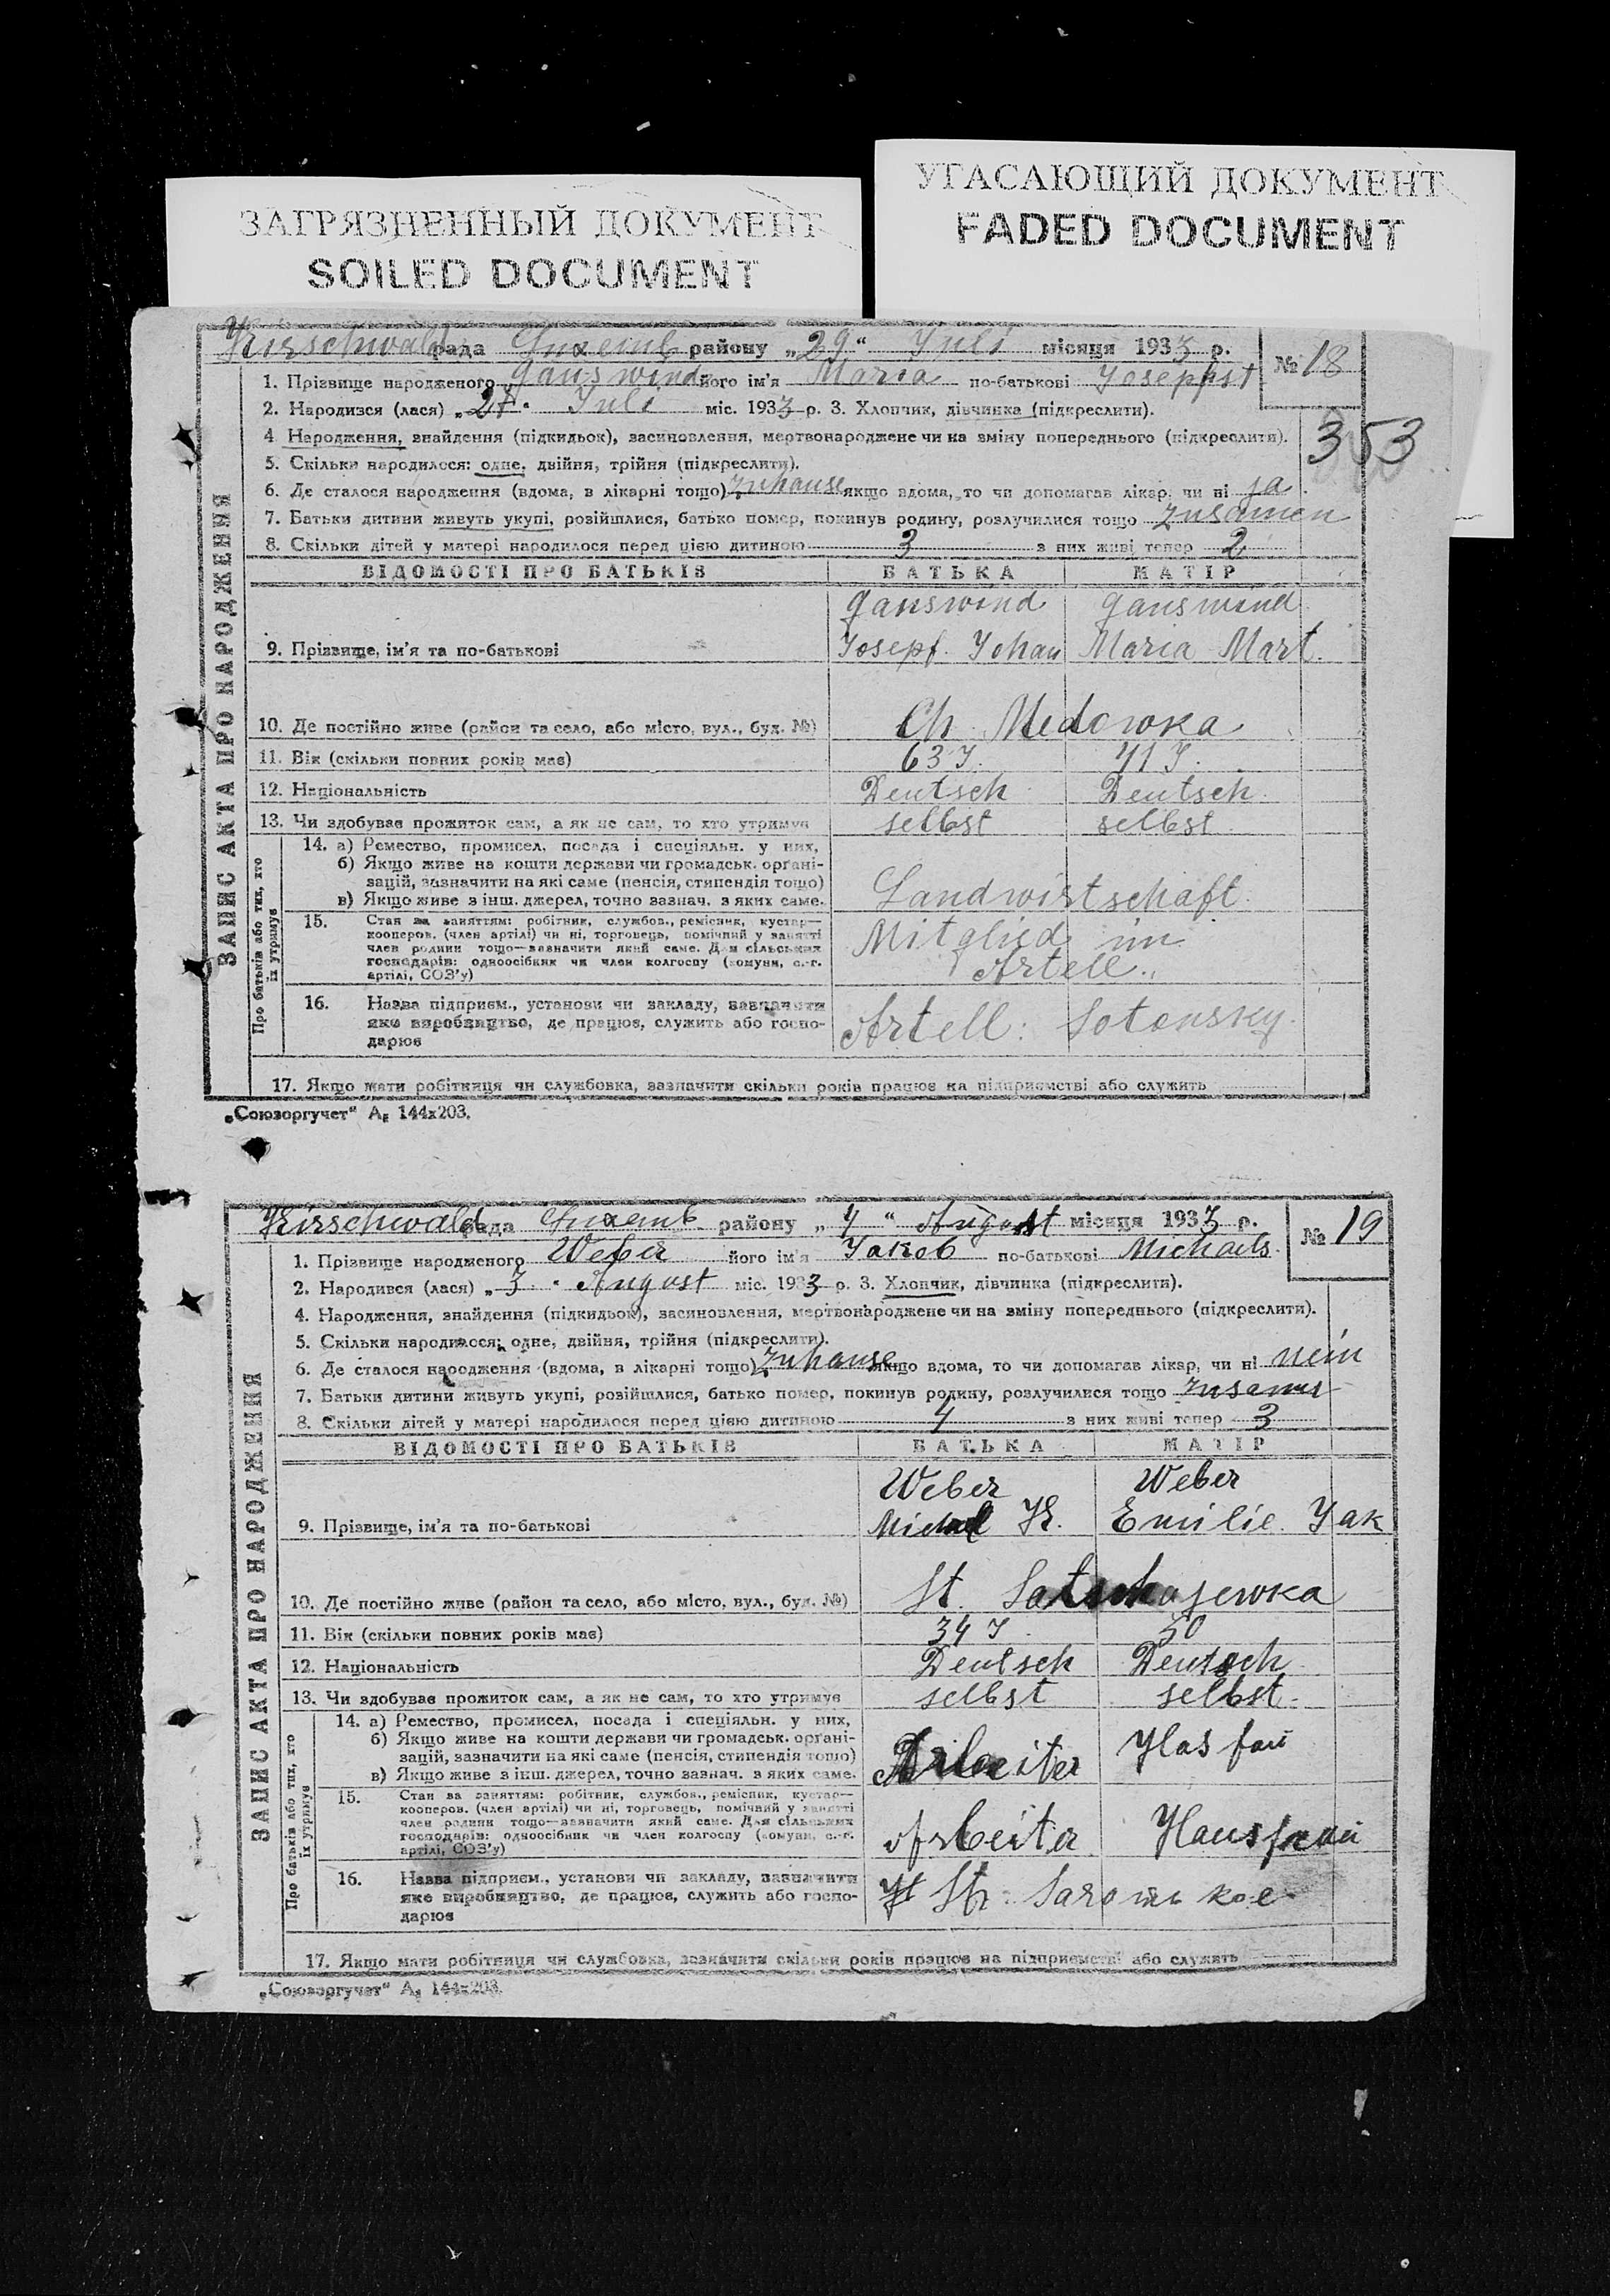 ЗАГРЯЗНЕННЫЙ ДОКУМЕНТ
SOILED DOCUMENT
УГАСАЮЩИЙ ДОКУМЕНТ
FADED DOCUMENT
Kirschwald рада району „29“ Juli місяця 1933 р. № 18
1. Прізвище народженого Ganswind його ім'я Maria по-батькові
2. Народився (лася) „ “ Juli міс. 1933 р. 3. Хлопчик, дівчинка (підкреслити).
353
4 Народження, знайдення (підкидьок), засиновлення, мертвонароджене чи на зміну попереднього (підкреслити).
5. Скільки народилося: одне, двійня, трійня (підкреслити).
6. Де сталося народження (вдома, в лікарні тощо) zuhause якщо вдома, то чи допомагав лікар, чи ні ja
7. Батьки дитини живуть укупі, розійшлися, батько помер, покинув родину, розлучилися тощо zusamen
8. Скільки дітей у матері народилося перед цією дитиною 3 з них живі тепер 2
ВІДОМОСТІ ПРО БАТЬКІВ БАТЬКА МАТІР
Ganswind Ganswind
9. Прізвище, ім'я та по-батькові Josepf. Johan Maria Mart.
10. Де постійно живе (район та село, або місто, вул., буд. №) Ch Medowka
11. Вік (скільки повних років має) 63 J. 41 J.
12. Національність Deutsch Deutsch.
13. Чи здобував прожиток сам, а як не сам, то хто утримув selbst selbst
14. а) Ремество, промисел, посада і спеціяльн. у них,
б) Якщо живе на кошти держави чи громадськ. органі-
зацій, зазначити на які саме (пенсія, стипендія тощо)
в) Якщо живе з інш. джерел, точно зазнач. з яких саме.
Landwirtschaft.
15. Стан за заняттям: робітник, службов., ремісник, кустар—
кооперов. (член артілі) чи ні, торговець, помічний у занятті
член родини тощо—зазначити який саме. Для сільських
господарів: одноосібник чи член колгоспу (комуни, с.-г.
артілі, СОЗ'у)
Mitglied im
Artell.
16. Назва підприєм., установи чи закладу, зазначити
яке виробництво, де працює, служить або госпо-
дарює
Artell: Sotonsky.
17. Якщо мати робітниця чи службовка, зазначити скільки років працює на підприємстві або служить
Про батьків або тих, хто
їх утримує
ЗАПИС АКТА ПРО НАРОДЖЕННЯ
„Союзоргучет“ А₅ 144х203.
Kirschwald рада району „4“ August місяця 1933 р. № 19
1. Прізвище народженого Weber його ім'я Jakob по-батькові Michaels.
2. Народився (лася) „3“ August міс. 1933 р. 3. Хлопчик, дівчинка (підкреслити).
4. Народження, знайдення (підкидьок), засиновлення, мертвонароджене чи на зміну попереднього (підкреслити).
5. Скільки народилося: одне, двійня, трійня (підкреслити).
6. Де сталося народження (вдома, в лікарні тощо) zuhause якщо вдома, то чи допомагав лікар, чи ні nein
7. Батьки дитини живуть укупі, розійшлися, батько помер, покинув родину, розлучилися тощо
8. Скільки дітей у матері народилося перед цією дитиною 4 з них живі тепер 3
ВІДОМОСТІ ПРО БАТЬКІВ БАТЬКА МАТІР
Weber Weber
9. Прізвище, ім'я та по-батькові Michael Emilie. Jak
10. Де постійно живе (район та село, або місто, вул., буд. №) St.
11. Вік (скільки повних років має) 34 J 30
12. Національність Deutsch Deutsch
13. Чи здобував прожиток сам, а як не сам, то хто утримує selbst selbst.
14. а) Ремество, промисел, посада і спеціяльн. у них,
б) Якщо живе на кошти держави чи громадськ. органі-
зацій, зазначити на які саме (пенсія, стипендія тощо)
в) Якщо живе з інш. джерел, точно зазнач. з яких саме.
Arbeiter
15. Стан за заняттям: робітник, службов., ремісник, кустар—
кооперов. (член артілі) чи ні, торговець, помічний у занятті
член родини тощо—зазначити який саме. Для сільських
господарів: одноосібник чи член колгоспу (комуни, с.-г.
артілі, СОЗ'у)
Arbeiter
16. Назва підприєм., установи чи закладу, зазначити
яке виробництво, де працює, служить або госпо-
дарює
17. Якщо мати робітниця чи службовка, зазначити скільки років працює на підприємстві або служить
Про батьків або тих, хто
їх утримує
ЗАПИС АКТА ПРО НАРОДЖЕННЯ
„Союзоргучет“ А₅ 144х203.